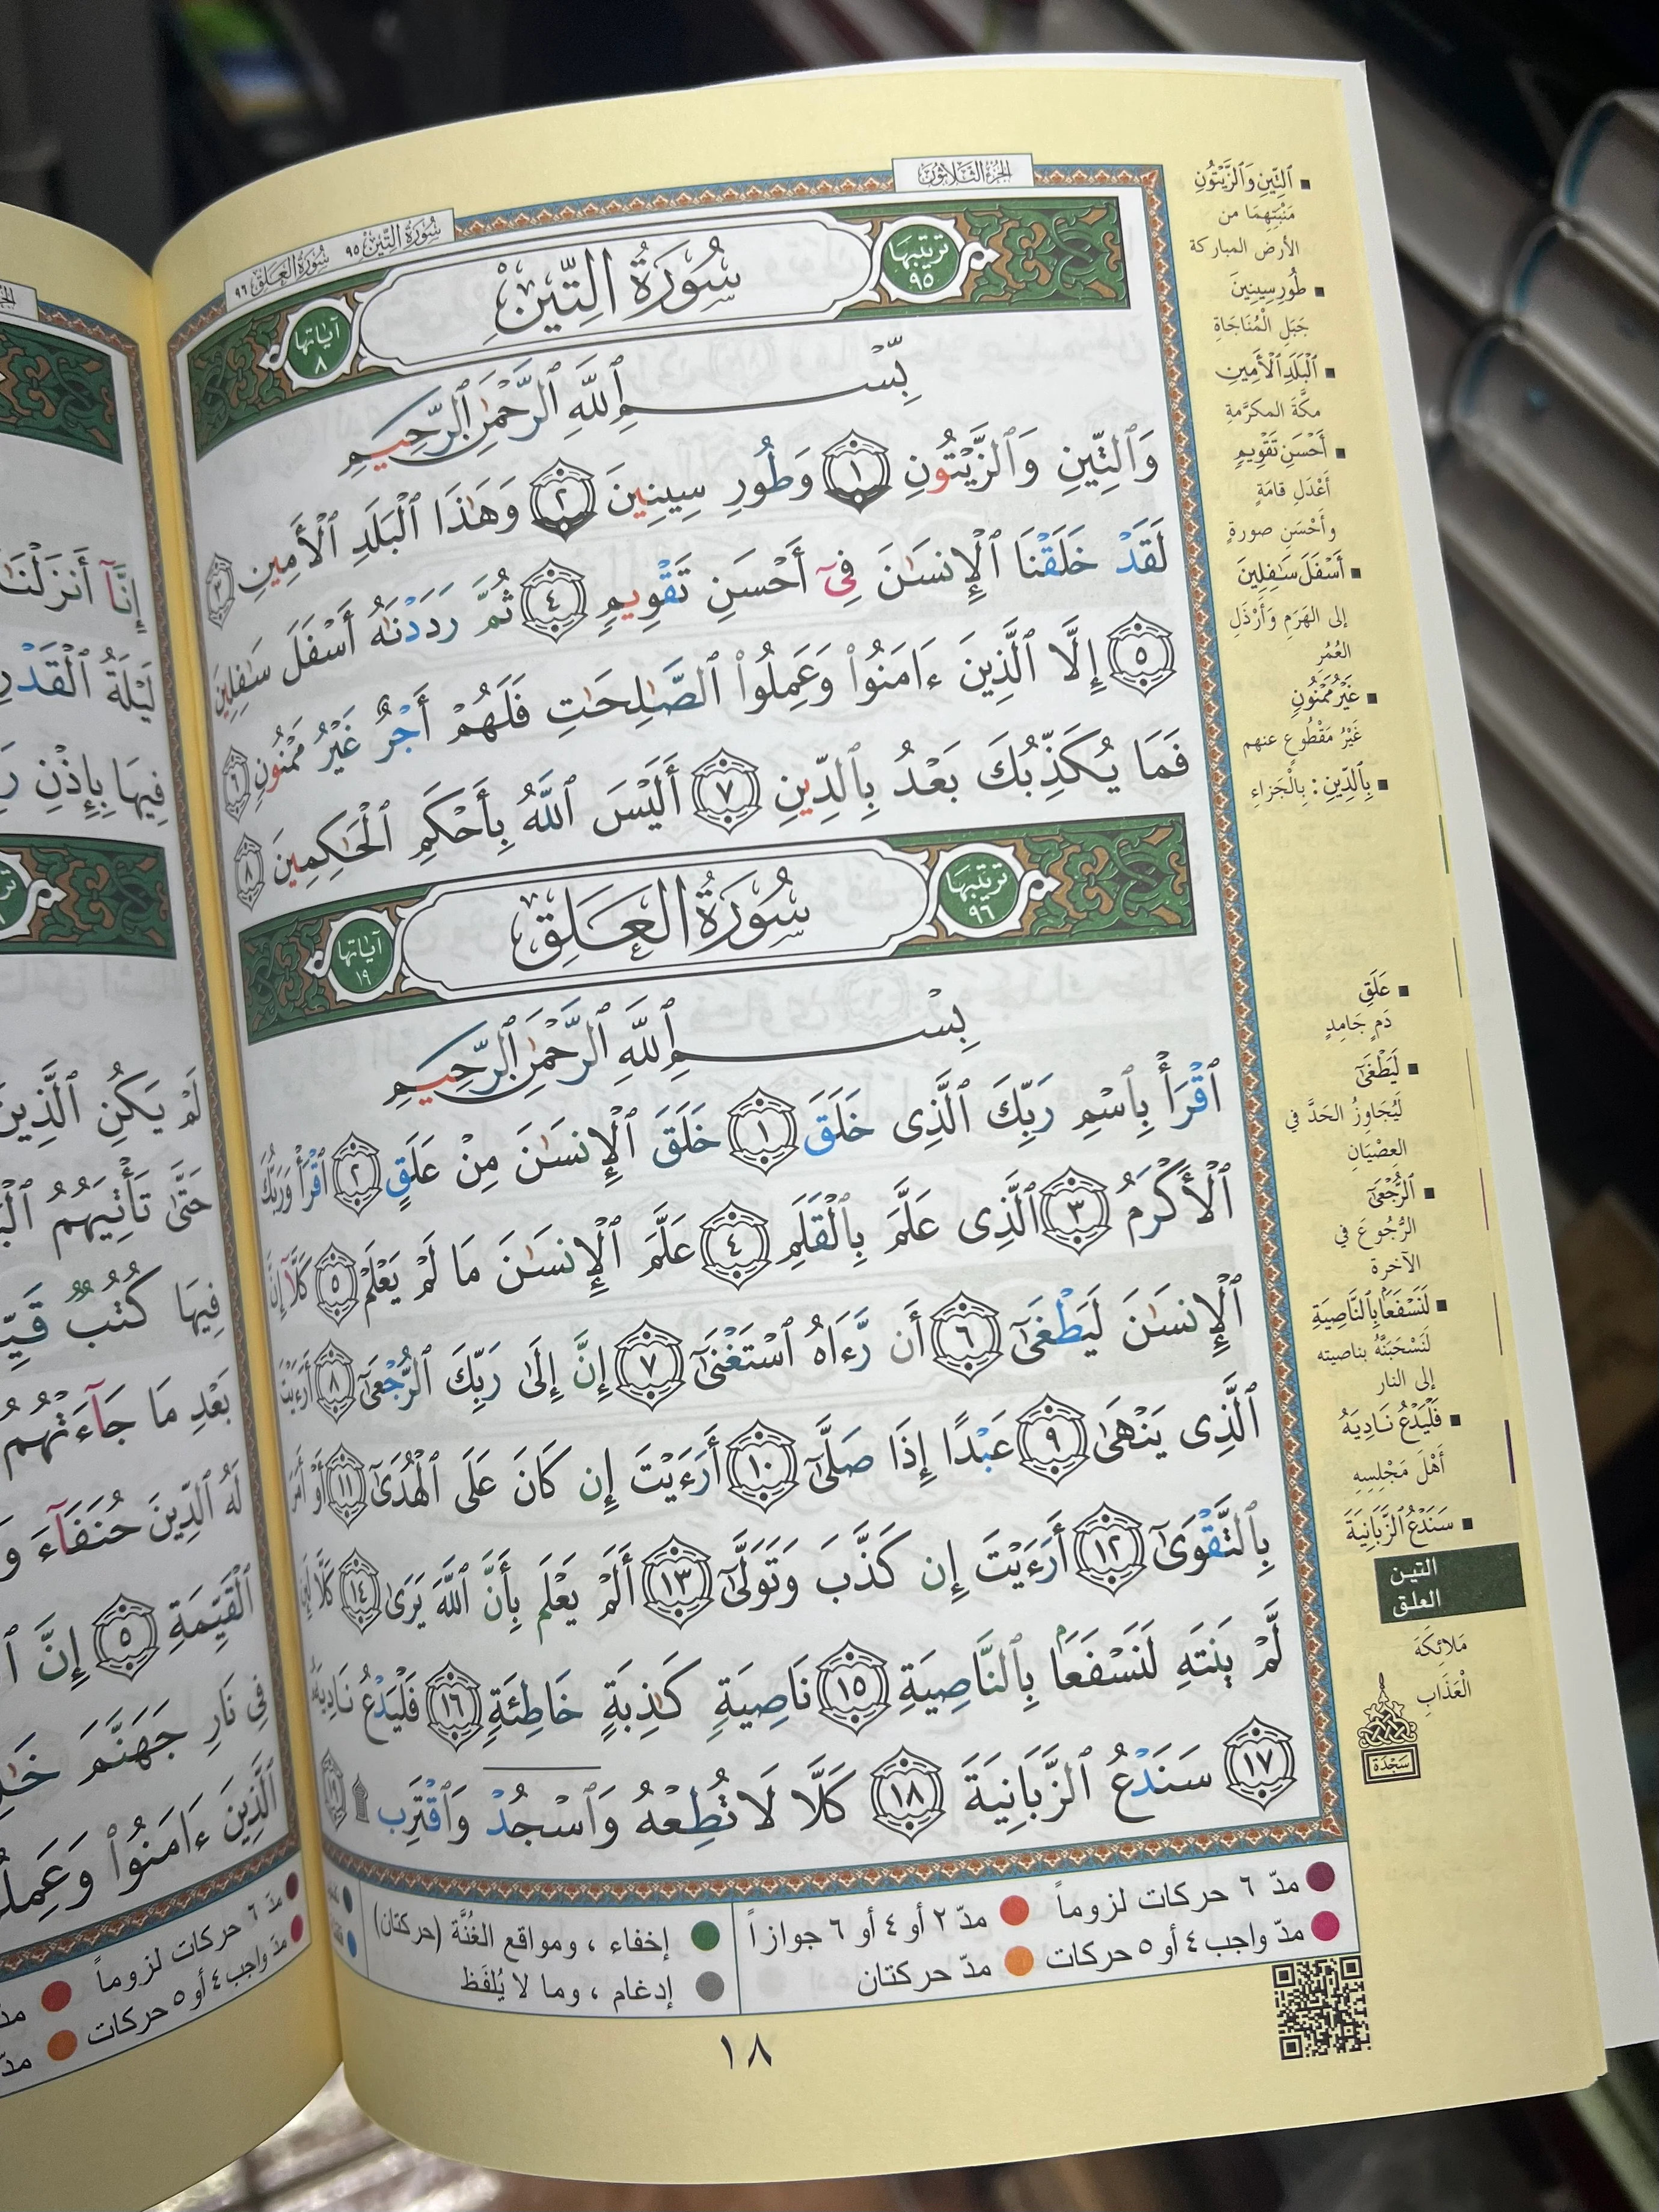 الجزء الثلاثون
سورة التين ٩٥ سورة العلق ٩٦
ترتيبها ٩٥ سُورَةُ التِّينِ آياتها ٨
بِّسْمِ ٱللَّهِ ٱلرَّحْمَٰنِ ٱلرَّحِيمِ
وَٱلتِّينِ وَٱلزَّيْتُونِ ١ وَطُورِ سِينِينَ ٢ وَهَٰذَا ٱلْبَلَدِ ٱلْأَمِينِ ٣
لَقَدْ خَلَقْنَا ٱلْإِنسَٰنَ فِىٓ أَحْسَنِ تَقْوِيمٍ ٤ ثُمَّ رَدَدْنَٰهُ أَسْفَلَ سَٰفِلِينَ
٥ إِلَّا ٱلَّذِينَ ءَامَنُوا۟ وَعَمِلُوا۟ ٱلصَّٰلِحَٰتِ فَلَهُمْ أَجْرٌ غَيْرُ مَمْنُونٍ ٦
فَمَا يُكَذِّبُكَ بَعْدُ بِٱلدِّينِ ٧ أَلَيْسَ ٱللَّهُ بِأَحْكَمِ ٱلْحَٰكِمِينَ ٨
ترتيبها ٩٦ سُورَةُ العَلَقِ آياتها ١٩
بِسْمِ ٱللَّهِ ٱلرَّحْمَٰنِ ٱلرَّحِيمِ
ٱقْرَأْ بِٱسْمِ رَبِّكَ ٱلَّذِى خَلَقَ ١ خَلَقَ ٱلْإِنسَٰنَ مِنْ عَلَقٍ ٢ ٱقْرَأْ وَرَبُّكَ
ٱلْأَكْرَمُ ٣ ٱلَّذِى عَلَّمَ بِٱلْقَلَمِ ٤ عَلَّمَ ٱلْإِنسَٰنَ مَا لَمْ يَعْلَمْ ٥ كَلَّآ إِنَّ
ٱلْإِنسَٰنَ لَيَطْغَىٰٓ ٦ أَن رَّءَاهُ ٱسْتَغْنَىٰٓ ٧ إِنَّ إِلَىٰ رَبِّكَ ٱلرُّجْعَىٰٓ ٨ أَرَءَيْتَ
ٱلَّذِى يَنْهَىٰ ٩ عَبْدًا إِذَا صَلَّىٰٓ ١٠ أَرَءَيْتَ إِن كَانَ عَلَى ٱلْهُدَىٰٓ ١١ أَوْ أَمَرَ
بِٱلتَّقْوَىٰٓ ١٢ أَرَءَيْتَ إِن كَذَّبَ وَتَوَلَّىٰٓ ١٣ أَلَمْ يَعْلَم بِأَنَّ ٱللَّهَ يَرَىٰ ١٤ كَلَّا لَئِن
لَّمْ يَنتَهِ لَنَسْفَعًۢا بِٱلنَّاصِيَةِ ١٥ نَاصِيَةٍ كَٰذِبَةٍ خَاطِئَةٍ ١٦ فَلْيَدْعُ نَادِيَهُۥ
١٧ سَنَدْعُ ٱلزَّبَانِيَةَ ١٨ كَلَّا لَا تُطِعْهُ وَٱسْجُدْ وَٱقْتَرِب ۩ ١٩
ٱلتِّينِ وَٱلزَّيْتُونِ
مَنْبَتِهِمَا من
الأرض المباركة
طُورِ سِينِينَ
جَبَلِ الْمُنَاجَاةِ
ٱلْبَلَدِ ٱلْأَمِينِ
مكَّةَ المكرَّمةِ
أَحْسَنِ تَقْوِيمٍ
أَعْدَلِ قامَةٍ
وأَحْسَنِ صورةٍ
أَسْفَلَ سَٰفِلِينَ
إلى الهَرَمِ وَأَرْذَلِ
العُمُرِ
غَيْرُ مَمْنُونٍ
غَيْرُ مَقْطُوعٍ عنهم
بِٱلدِّينِ : بِالْجَزاءِ
عَلَقٍ
دَمٍ جَامِدٍ
لَيَطْغَىٰٓ
لَيُجَاوِزُ الحَدَّ في
العِصْيَانِ
ٱلرُّجْعَىٰٓ
الرُّجُوعَ في
الآخرة
لَنَسْفَعًۢا بِٱلنَّاصِيَةِ
لَنَسْحَبَنَّهُ بناصيته
إلى النار
فَلْيَدْعُ نَادِيَهُۥ
أَهْلَ مَجْلِسِهِ
سَنَدْعُ ٱلزَّبَانِيَةَ
التين
العلق
مَلائِكَةَ
الْعَذَابِ
سَجْدَة
مدّ ٦ حركات لزوماً مدّ ٢ أو ٤ أو ٦ جوازاً
مدّ واجب ٤ أو ٥ حركات مدّ حركتان
إخفاء ، ومواقع الغُنَّة (حركتان)
إدغام ، وما لا يُلفَظ
١٨
إِنَّآ أَنزَلْنَٰ
لَيْلَةُ ٱلْقَدْرِ
فِيهَا بِإِذْنِ
لَمْ يَكُنِ ٱلَّذِينَ
حَتَّىٰ تَأْتِيَهُمُ
فِيهَا كُتُبٌ
بَعْدِ مَا جَآءَتْهُمُ
لَهُ ٱلدِّينَ حُنَفَآءَ
ٱلْقَيِّمَةِ ٥ إِنَّ
فِى نَارِ جَهَنَّمَ
ٱلَّذِينَ ءَامَنُوا۟
مدّ ٦ حركات لزوماً
مدّ واجب ٤ أو ٥ حركات